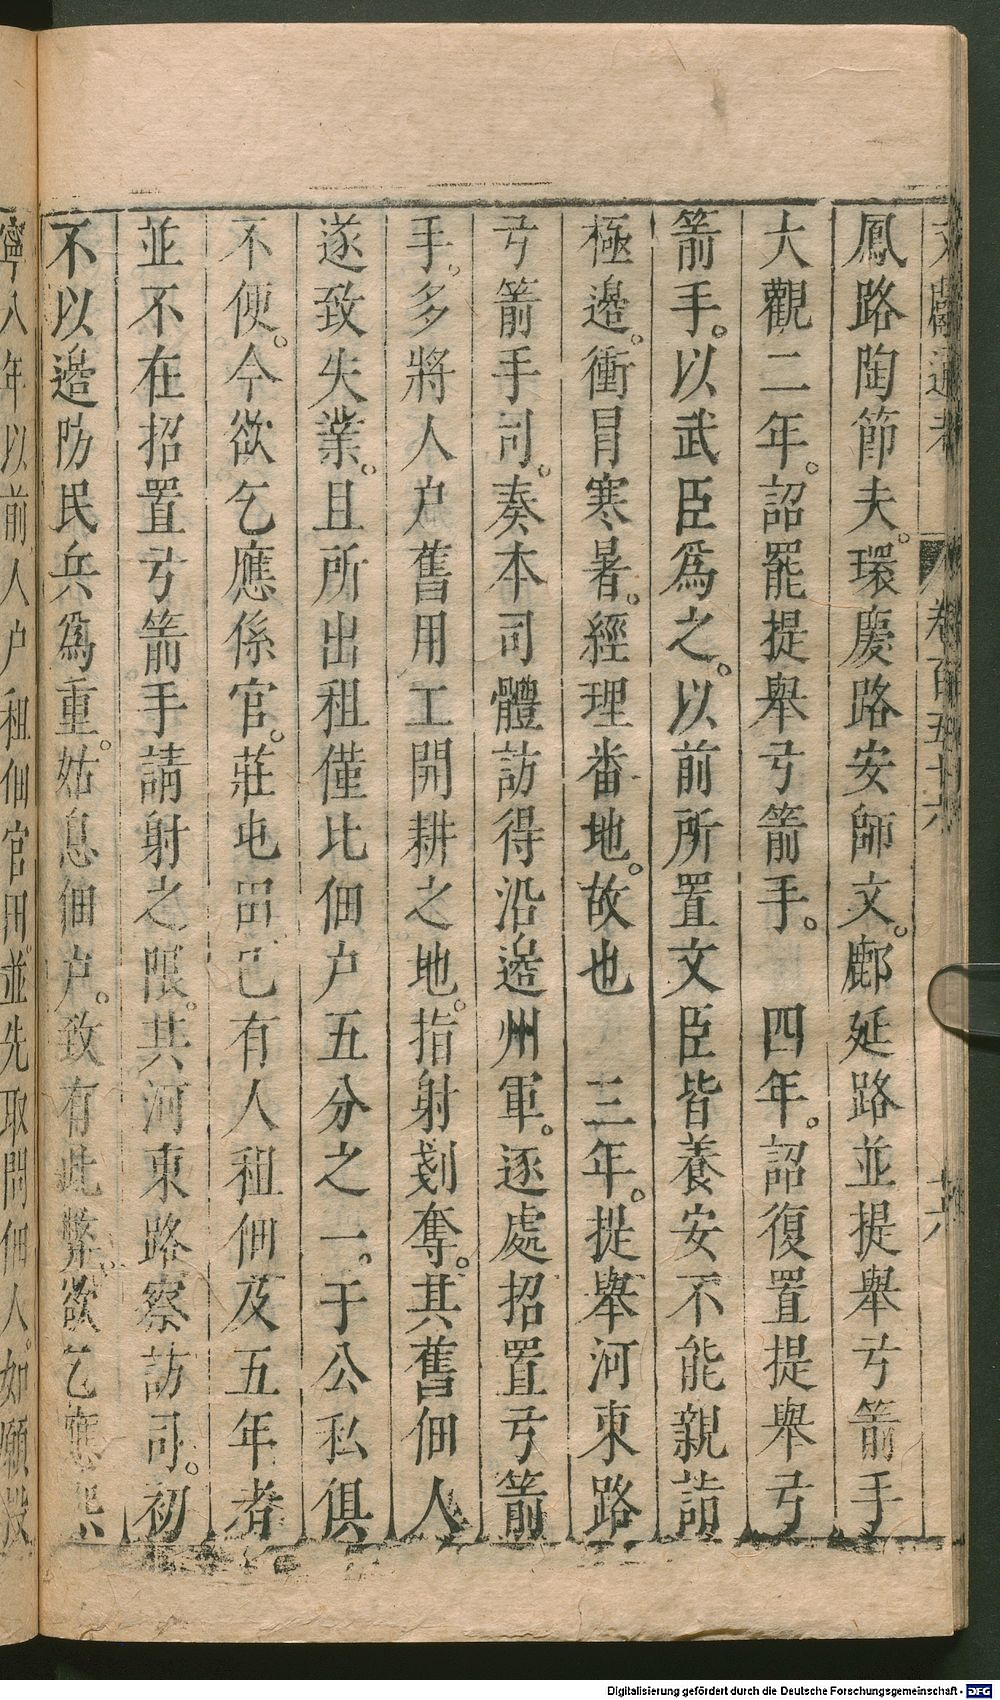 文獻通考 卷百五十六 十六
鳳路陶節夫。環慶路安師文。鄜延路並提舉弓箭手
大觀二年。詔罷提舉弓箭手。 四年。詔復置提舉弓
箭手。以武臣爲之。以前所置文臣皆養安不能親詣
極邊。衝冒寒暑。經理番地。故也 三年。提舉河東路
弓箭手司。奏本司體訪得沿邊州軍。逐處招置弓箭
手。多將人户舊用工開耕之地。指射剗奪。其舊佃人
遂致失業。且所出租僅比佃户五分之一。于公私俱
不便。今欲乞應係官。莊屯田已有人租佃及五年者
並不在招置弓箭手請射之限。其河東路察訪司。初
不以邊防民兵爲重。姑息佃户。致有此弊。欲乞應熙
寧八年以前人户租佃官田並先取問佃人。如願投
Digitalisierung gefördert durch die Deutsche Forschungsgemeinschaft - DFG